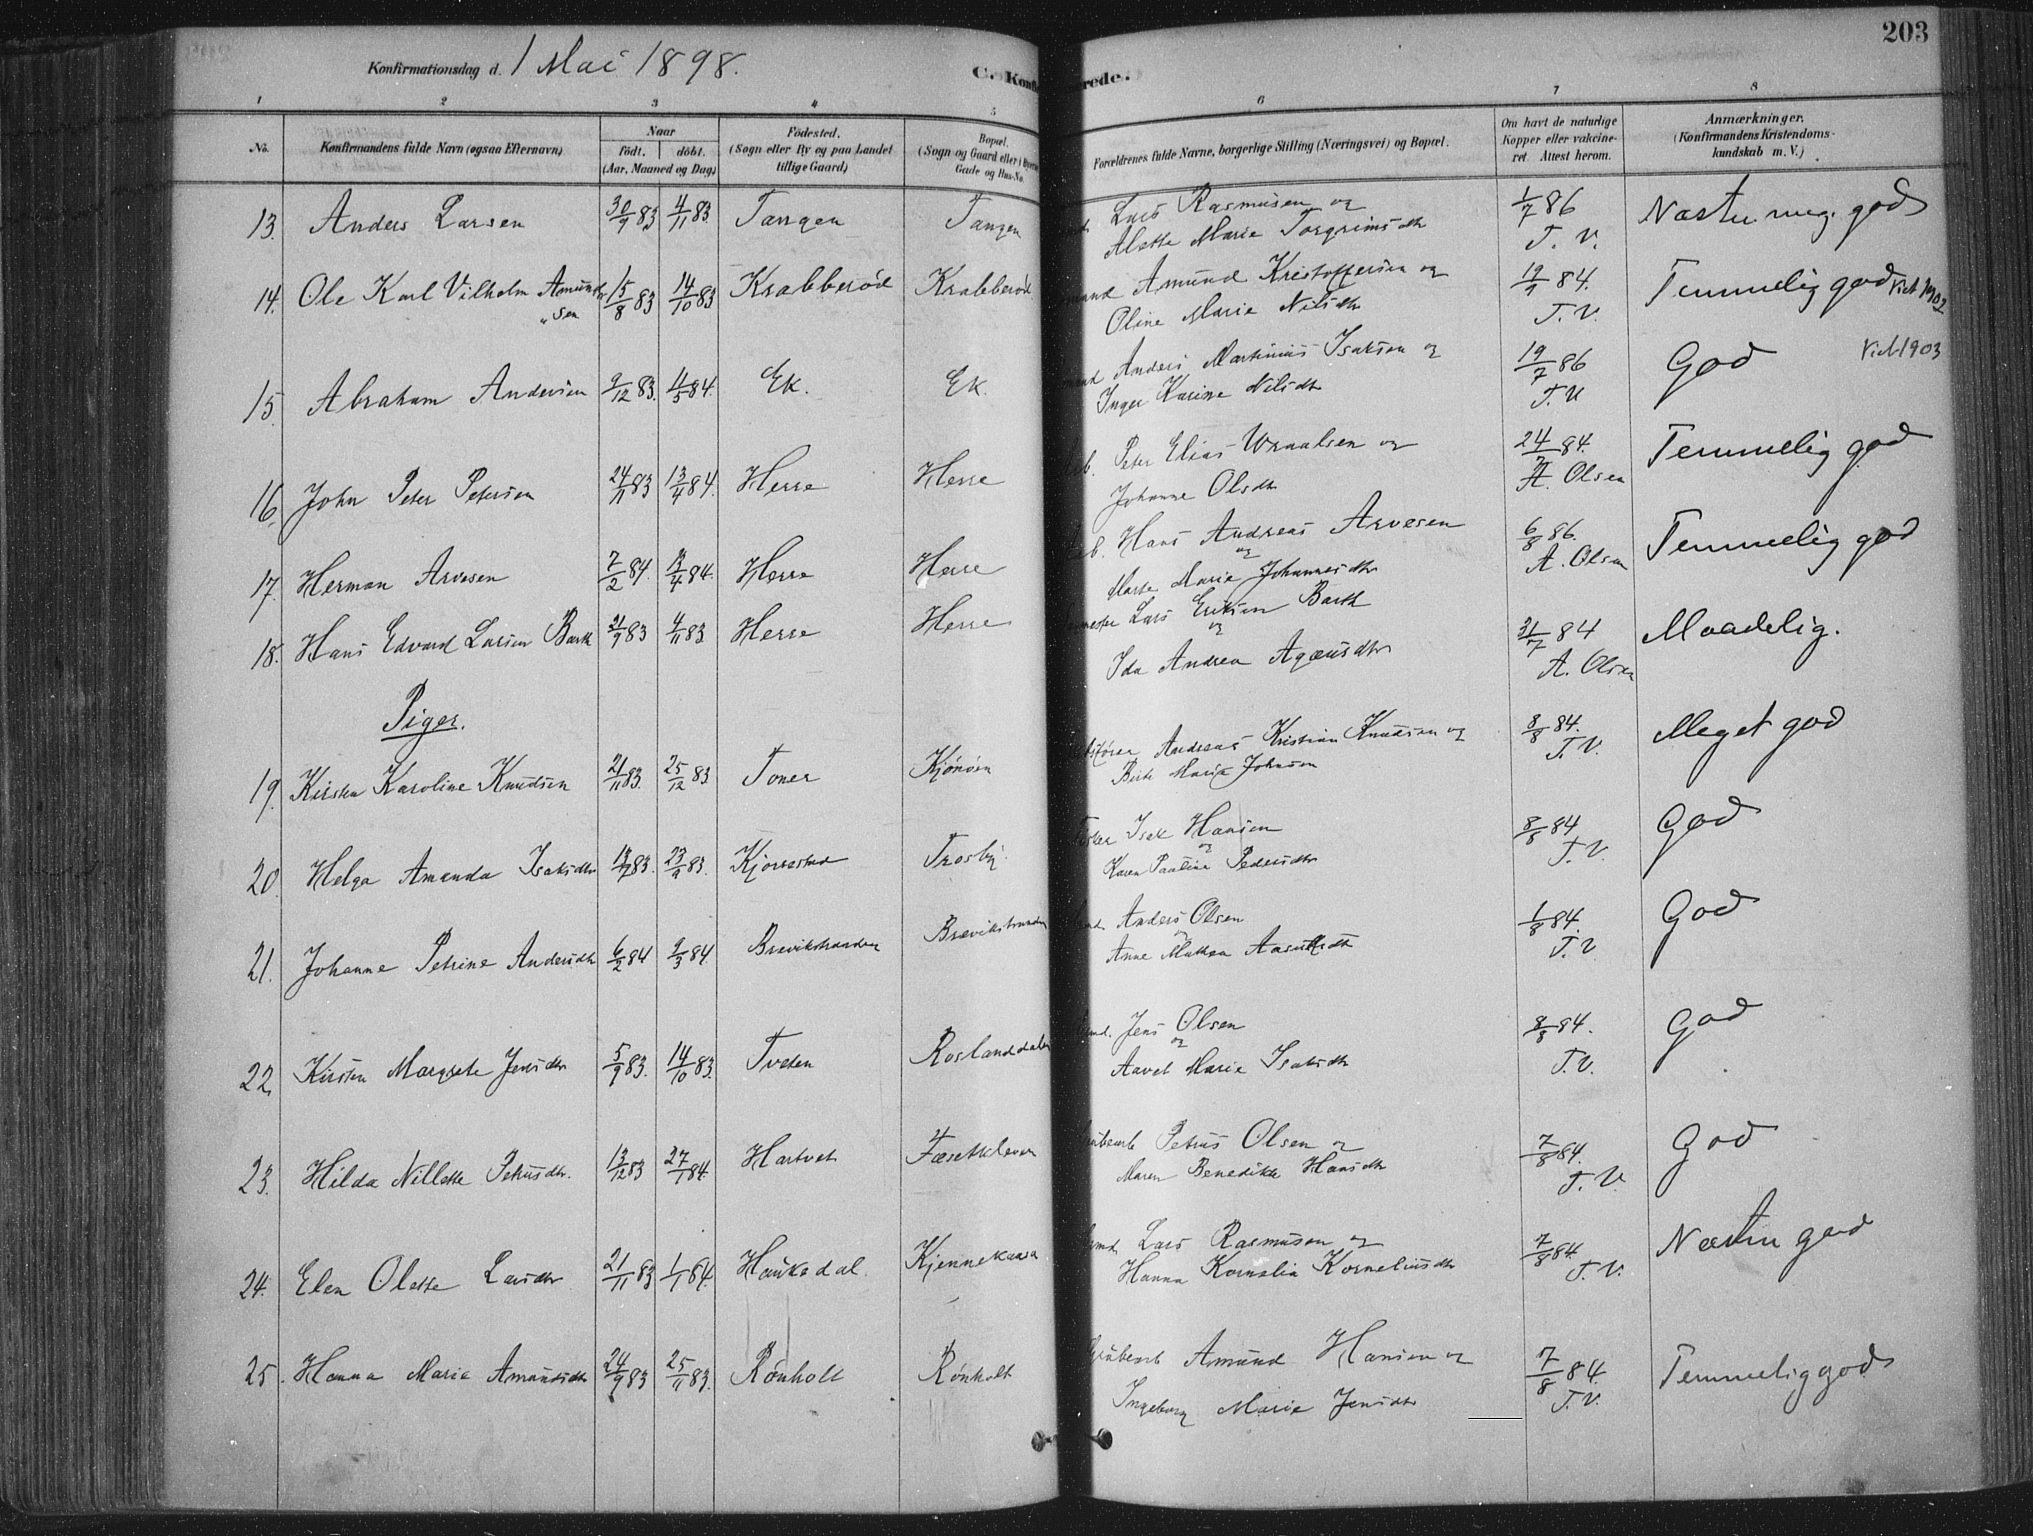 203
Konfirmationsdag d. 1 Mai 1898.
C. Konfi rede.
1 2 3 4 5 6 7 8
No. Konfirmandens fulde Navn (ogsaa Efternavn) Naar født. døbt. (Aar, Maaned og Dag) Fødested. (Sogn eller By og paa Landet tillige Gaard) Bopæl. (Sogn og Gaard eller i Gade og Hus-No. Forældrenes fulde Navne, borgerlige Stilling (Næringsvei) og Bopæl. Om havt de naturlige Kopper eller vakcineret. Attest herom. Anmærkninger. (Konfirmandens Kristendomskundskab m. V.)
13. Anders Larsen 30/9 83 4/11 83. Tangen Tangen Lars Rasmusen og 1/7 86 Næsten meg. god
Alette Marie Torgrimsdtr T. V.
14. Ole Karl Vilhelm Amund- 15/8 83 14/10 83 Krabberød Krabberød Amund Kristoffersen og 84. Temmelig god Vid. 1902
"sen Oline Marie Nilsdtr T. V.
15. Abraham Andersen 9/12 83. 4/5 84. Ek. Ek. Anders Martinius Isaksen og 19/7 86 God Vid. 1903
Inger Karine Nilsdtr T. V
16. John Peter Petersen 24/11 83 13/4 84. Herre Herre Peter Elias Wraalsen og 24/7 84. Temmelig god
Johanne Olsdtr A. Olsen
17. Herman Arvesen 7/2 84. 13/4 84. Herre Herre Hans Andreas Arvesen 6/8 86. Temmelig god
og
Marie Johannesdtr A. Olsen
18. Hans Edvard Larsen Barth 21/9 83 4/11 83 Herre Herre Lars Eriksen Barth 31/7 84 Maadelig.
og
Ida Andrea Agæusdtr A. Olsen
Piger.
19. Kirsten Karoline Knudsen 21/11 83. 25/12 83 Toner Kjønøen Andreas Kristian Knudsen og 8/8 84. Meget god
Marie Johnsen T. V.
20 Helga Amanda Isaksdtr 83. 23/9 83. Kjørrestad Trosby. Isak Hansen 8/8 84 God
og
Karen Pauline Pedersdtr T. V.
21. Johanne Petrine Andersdtr 6/2 84 9/3 84. Brevikstranden Brevikstranden Anders Olsen 1/8 84. God
Anne Mathea T. V
22. Kirsten Margrete Jensdtr 5/9 83. 14/10 83. Tveten Roslanddalen Jens Olsen 8/8 84. God
og
Marie Isaksdtr T. V.
23. Hilda Nillette Petrusdtr. 13/12 83 27/1 84. Hartvet Petrus Olsen og 7/8 84. God
Maren Benedikte Hansdtr T. V.
24. Elen Olette Larsdtr 21/11 83 1/1 84. Haukedal. Kjennekaasa Lars Rasmusen og 7/8 84. Næsten god
Hanna Kornelia Korneliusdtr T. V.
25. Hanna Marie Amundsdtr 24/9 83 25/11 83. Rønholt Rønholt Amund Hansen og 7/8 84. Temmelig god
Ingeborg Marie Jensdtr T. V.